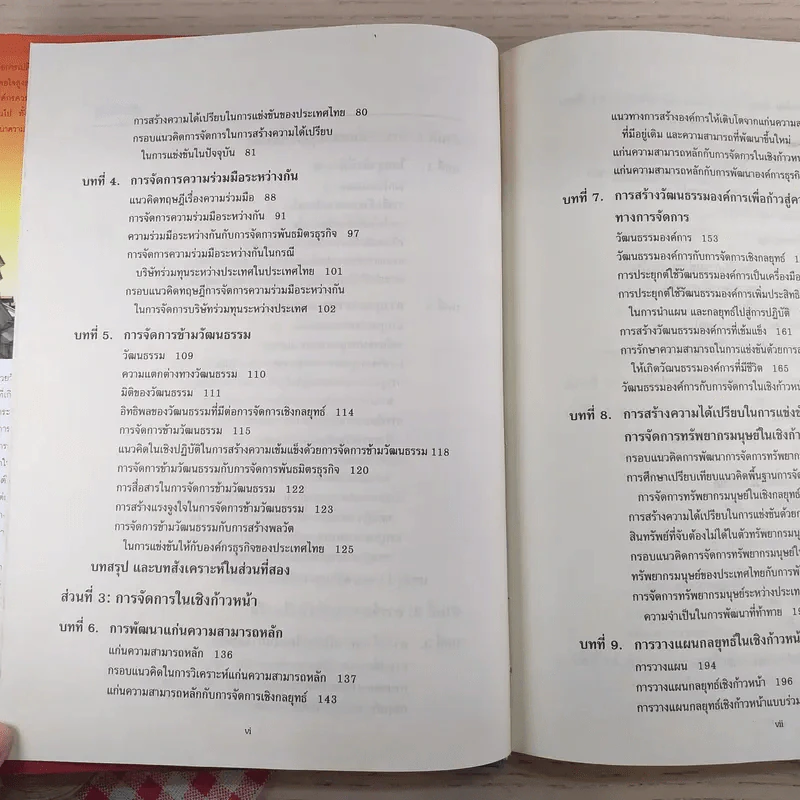 การสร้างความได้เปรียบในการแข่งขันของประเทศไทย 80
กรอบแนวคิดการจัดการในการสร้างความได้เปรียบ
ในการแข่งขันในปัจจุบัน 81
บทที่ 4. การจัดการความร่วมมือระหว่างกัน
แนวคิดทฤษฎีเรื่องความร่วมมือ 88
การจัดการความร่วมมือระหว่างกัน 91
ความร่วมมือระหว่างกันกับการจัดการพันธมิตรธุรกิจ 97
การจัดการความร่วมมือระหว่างกันในกรณี
บริษัทร่วมทุนระหว่างประเทศในประเทศไทย 101
กรอบแนวคิดทฤษฎีการจัดการความร่วมมือระหว่างกัน
ในการจัดการบริษัทร่วมทุนระหว่างประเทศ 102
บทที่ 5. การจัดการข้ามวัฒนธรรม
วัฒนธรรม 109
ความแตกต่างทางวัฒนธรรม 110
มิติของวัฒนธรรม 111
อิทธิพลของวัฒนธรรมที่มีต่อการจัดการเชิงกลยุทธ์ 114
การจัดการข้ามวัฒนธรรม 115
แนวคิดในเชิงปฏิบัติในการสร้างความเข้มแข็งด้วยการจัดการข้ามวัฒนธรรม 118
การจัดการข้ามวัฒนธรรมกับการจัดการพันธมิตรธุรกิจ 120
การสื่อสารในการจัดการข้ามวัฒนธรรม 122
การสร้างแรงจูงใจในการจัดการข้ามวัฒนธรรม 123
การจัดการข้ามวัฒนธรรมกับการสร้างพลวัต
ในการแข่งขันให้กับองค์กรธุรกิจของประเทศไทย 125
บทสรุป และบทสังเคราะห์ในส่วนที่สอง
ส่วนที่ 3: การจัดการในเชิงก้าวหน้า
บทที่ 6. การพัฒนาแก่นความสามารถหลัก
แก่นความสามารถหลัก 136
กรอบแนวคิดในการวิเคราะห์แก่นความสามารถหลัก 137
แก่นความสามารถหลักกับการจัดการเชิงกลยุทธ์ 143
vi
แนวทางการสร้างองค์การให้เติบโตจากแก่นความส
ที่มีอยู่เดิม และความสามารถที่พัฒนาขึ้นใหม่
แก่นความสามารถหลักกับการจัดการในเชิงก้าวห
แก่นความสามารถหลักกับการพัฒนาองค์การธุรกิ
บทที่ 7. การสร้างวัฒนธรรมองค์การเพื่อก้าวสู่คว
ทางการจัดการ
วัฒนธรรมองค์การ 153
วัฒนธรรมองค์การกับการจัดการเชิงกลยุทธ์
การประยุกต์ใช้วัฒนธรรมองค์การเป็นเครื่องมือ
การประยุกต์ใช้วัฒนธรรมองค์การเพิ่มประสิทธิ
ในการนำแผน และกลยุทธ์ไปสู่การปฏิบัติ
การสร้างวัฒนธรรมองค์การที่เข้มแข็ง 161
การรักษาความสามารถในการแข่งขันด้วยการส
ให้เกิดวัฒนธรรมองค์การที่มีชีวิต 165
วัฒนธรรมองค์การกับการจัดการในเชิงก้าวหน
บทที่ 8. การสร้างความได้เปรียบในการแข่งขั
การจัดการทรัพยากรมนุษย์ในเชิงก้าว
กรอบแนวคิดการพัฒนาการจัดการทรัพยาก
การศึกษาเปรียบเทียบแนวคิดพื้นฐานการจัด
การจัดการทรัพยากรมนุษย์ในเชิงกลยุทธ์
การสร้างความได้เปรียบในการแข่งขันด้วยก
สินทรัพย์ที่จับต้องไม่ได้ในตัวทรัพยากรมนุ
กรอบแนวคิดการจัดการทรัพยากรมนุษย์
ทรัพยากรมนุษย์ของประเทศไทยกับการพัฒ
การจัดการทรัพยากรมนุษย์ระหว่างประเท
ความจำเป็นในการพัฒนาที่ท้าทาย
บทที่ 9. การวางแผนกลยุทธ์ในเชิงก้าวหน้
การวางแผน 194
การวางแผนกลยุทธ์ในเชิงก้าวหน้า 196
การวางแผนกลยุทธ์เชิงก้าวหน้าแบบร่วม
vii